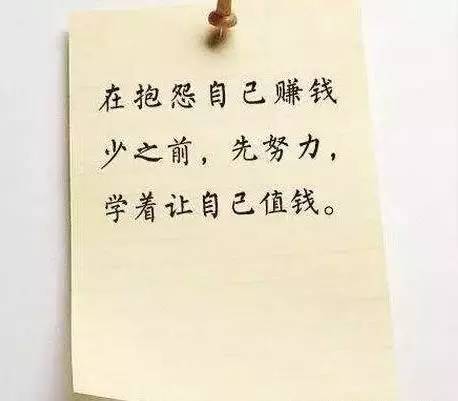 在抱怨自己赚钱
少之前，先努力，
学着让自己值钱。